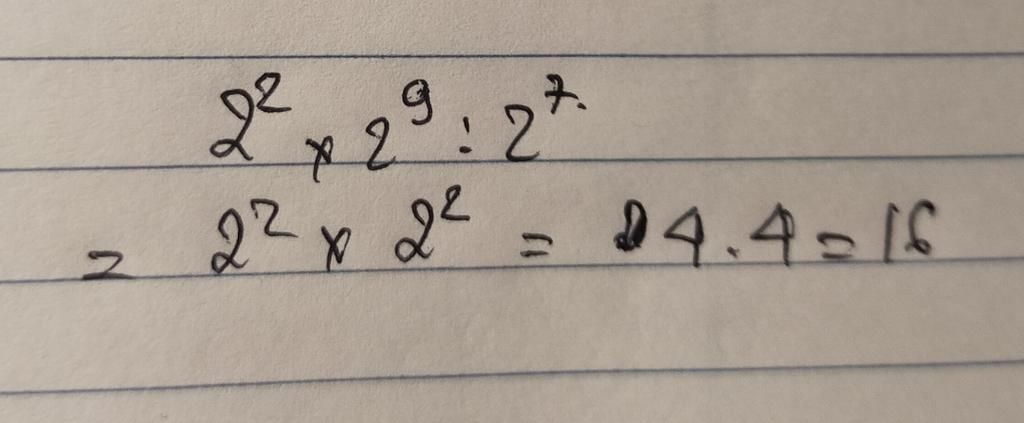 2² × 2⁹ : 2⁷.
= 2² × 2² = 4 . 4 = 16